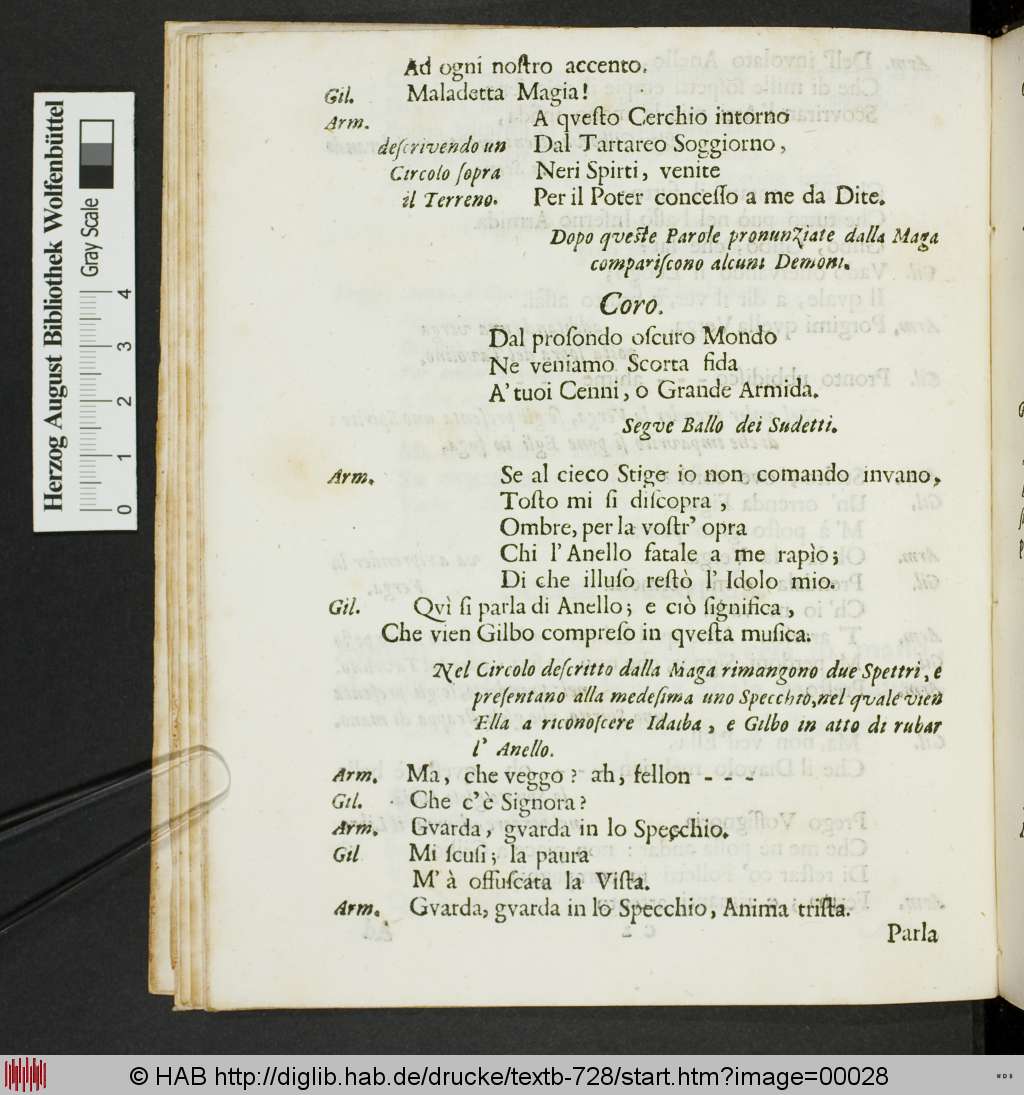 Ad ogni noſtro accento.
Gil. Maladetta Magia!
Arm. A qveſto Cerchio intorno
deſcrivendo un Dal Tartareo Soggiorno,
Circolo ſopra Neri Spirti, venite
il Terreno. Per il Poter conceſſo a me da Dite.
Dopo qveſte Parole pronunziate dalla Maga
compariſcono alcuni Demoni.
Coro.
Dal profondo oſcuro Mondo
Ne veniamo Scorta fida
A' tuoi Cenni, o Grande Armida.
Segve Ballo dei Sudetti.
Arm. Se al cieco Stige io non comando invano,
Toſto mi ſi diſcopra,
Ombre, per la voſtr' opra
Chi l' Anello fatale a me rapìo;
Di che illuſo reſtò l' Idolo mio.
Gil. Qvì ſi parla di Anello; e ciò ſignifica,
Che vien Gilbo compreſo in qveſta muſica.
Nel Circolo deſcritto dalla Maga rimangono due Spettri, e
preſentano alla medeſima uno Specchio, nel qvale vien
Ella a riconoſcere Idalba, e Gilbo in atto di rubar
l' Anello.
Arm. Ma, che veggo? ah, fellon - - -
Gil. Che c'è Signora?
Arm. Gvarda, gvarda in lo Specchio.
Gil Mi scuſi; la paura
M' à offuſcata la Viſta.
Arm. Gvarda, gvarda in lo Specchio, Anima triſta.
Parla
Herzog August Bibliothek Wolfenbüttel
Gray Scale
0 1 2 3 4
© HAB http://diglib.hab.de/drucke/textb-728/start.htm?image=00028